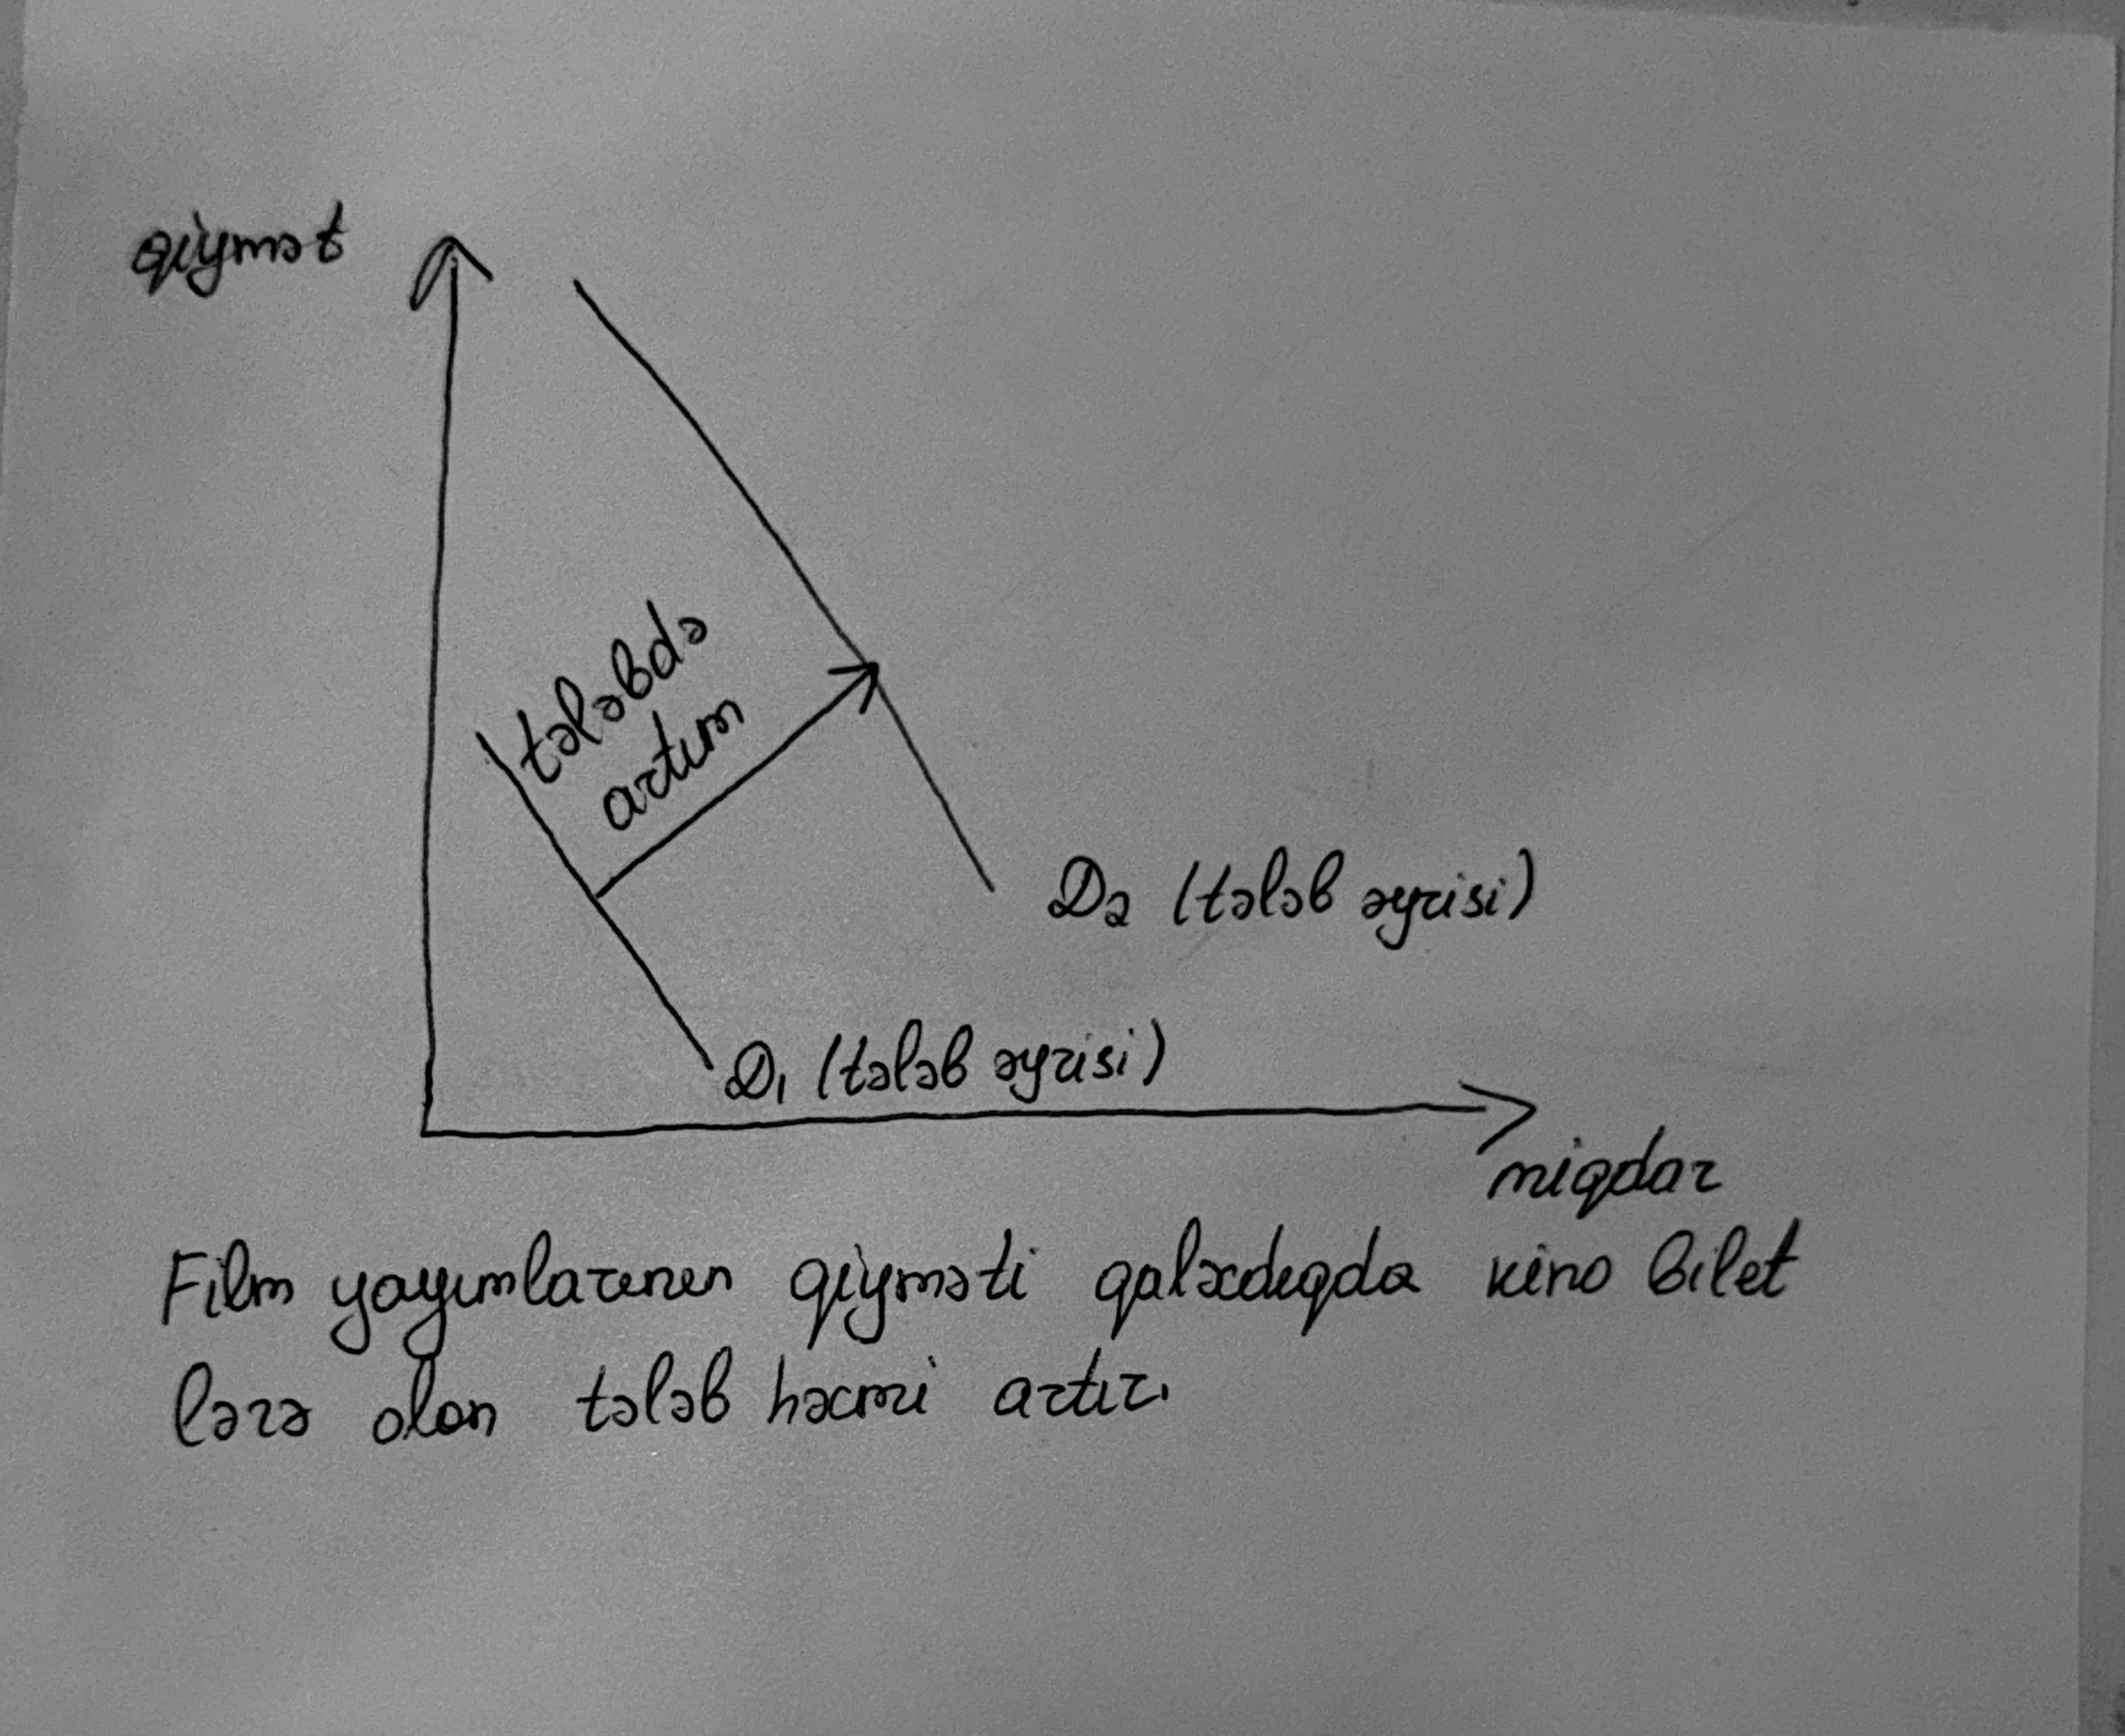 qiymət
tələbdə
artım
D2 (tələb əyrisi)
D1 (tələb əyrisi)
miqdar
Film yayımlarının qiyməti qalxdıqda kino bilet
lərə olan tələb həcmi artır.